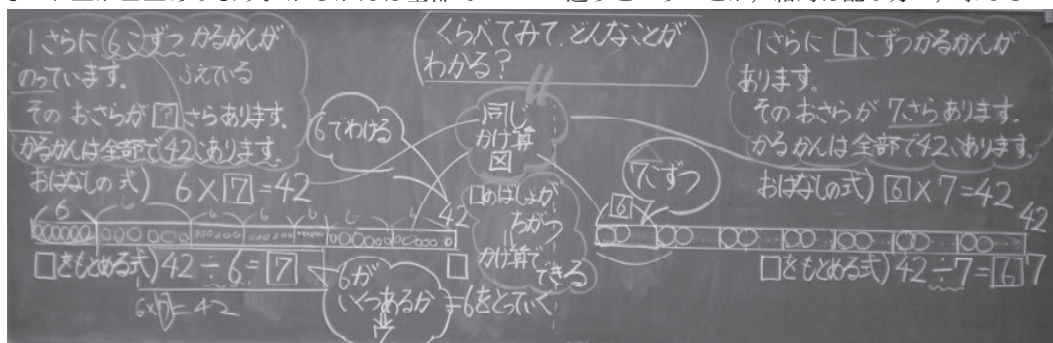 1さらに6こずつかるかんが
のっています。 ふえている
そのおさらが?さらあります。
かるかんは全部で42こあります。
おはなしの式) 6×7=42
6 6 6 6 6 6 42
□をもとめる式) 42÷6=7
6×7=42
6でわける
6が
いくつあるか
↓
7
=6をとっていく
くらべてみて、どんなことが
わかる?
同じ
かけ算
図
□のばしょが
ちがう
かけ算で
できる
□
7こずつ
6
1さらに□こずつかるかんが
あります。
そのおさらが7さらあります。
かるかんは全部で42こあります。
おはなしの式) 6×7=42
42
□をもとめる式) 42÷7=6
7